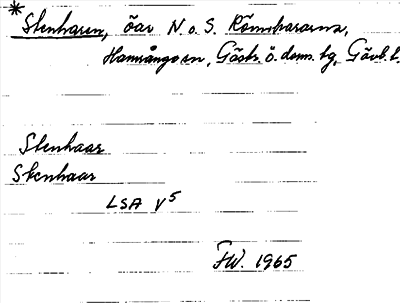 * Stenharen, öar N o S. Römskararna,
Hamrånge sn, Gästr. ö. doms. tg, Gävl. l.
Stenhaar
Stenhaar
LSA V5
FW. 1965